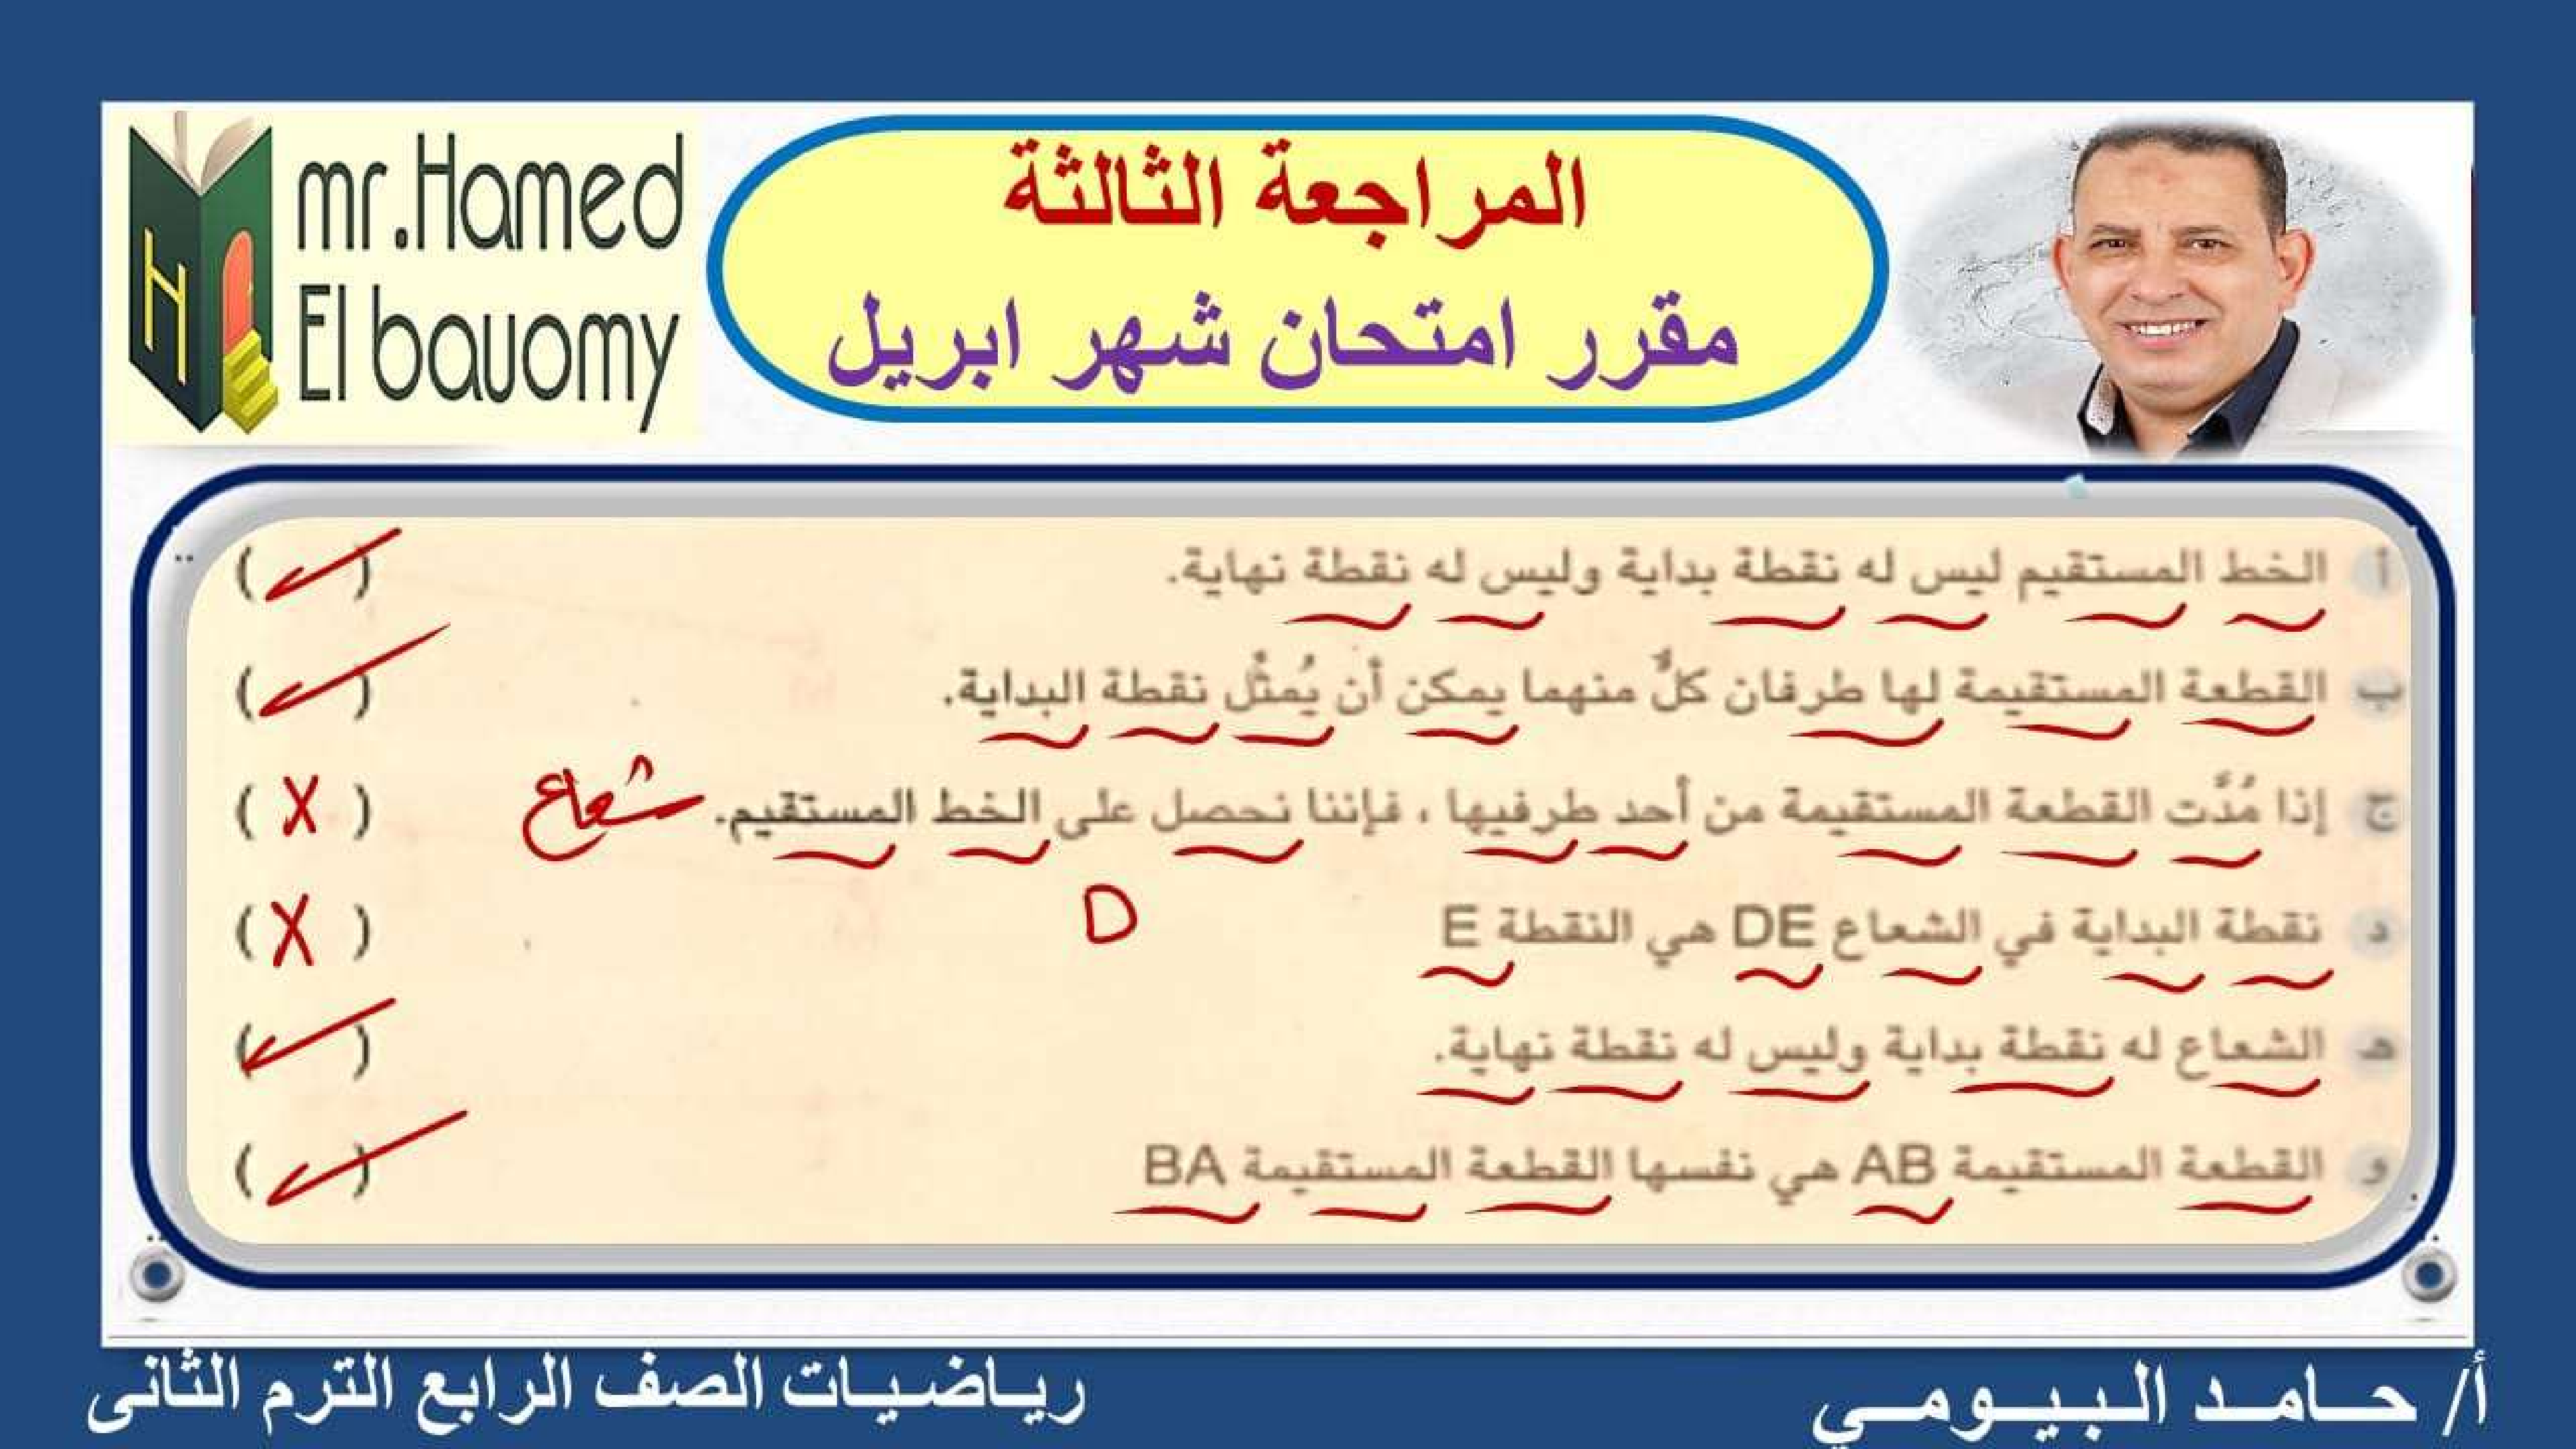 mr.Hamed
El bauomy
المراجعة الثالثة
مقرر امتحان شهر ابريل
أ الخط المستقيم ليس له نقطة بداية وليس له نقطة نهاية. (✓)
ب القطعة المستقيمة لها طرفان كلٌّ منهما يمكن أن يُمثِّل نقطة البداية. (✓)
ج إذا مُدَّت القطعة المستقيمة من أحد طرفيها ، فإننا نحصل على الخط المستقيم. شعاع (X)
د نقطة البداية في الشعاع DE هي النقطة E D (X)
هـ الشعاع له نقطة بداية وليس له نقطة نهاية. (✓)
و القطعة المستقيمة AB هي نفسها القطعة المستقيمة BA (✓)
أ/ حامد البيومي
رياضيات الصف الرابع الترم الثانى